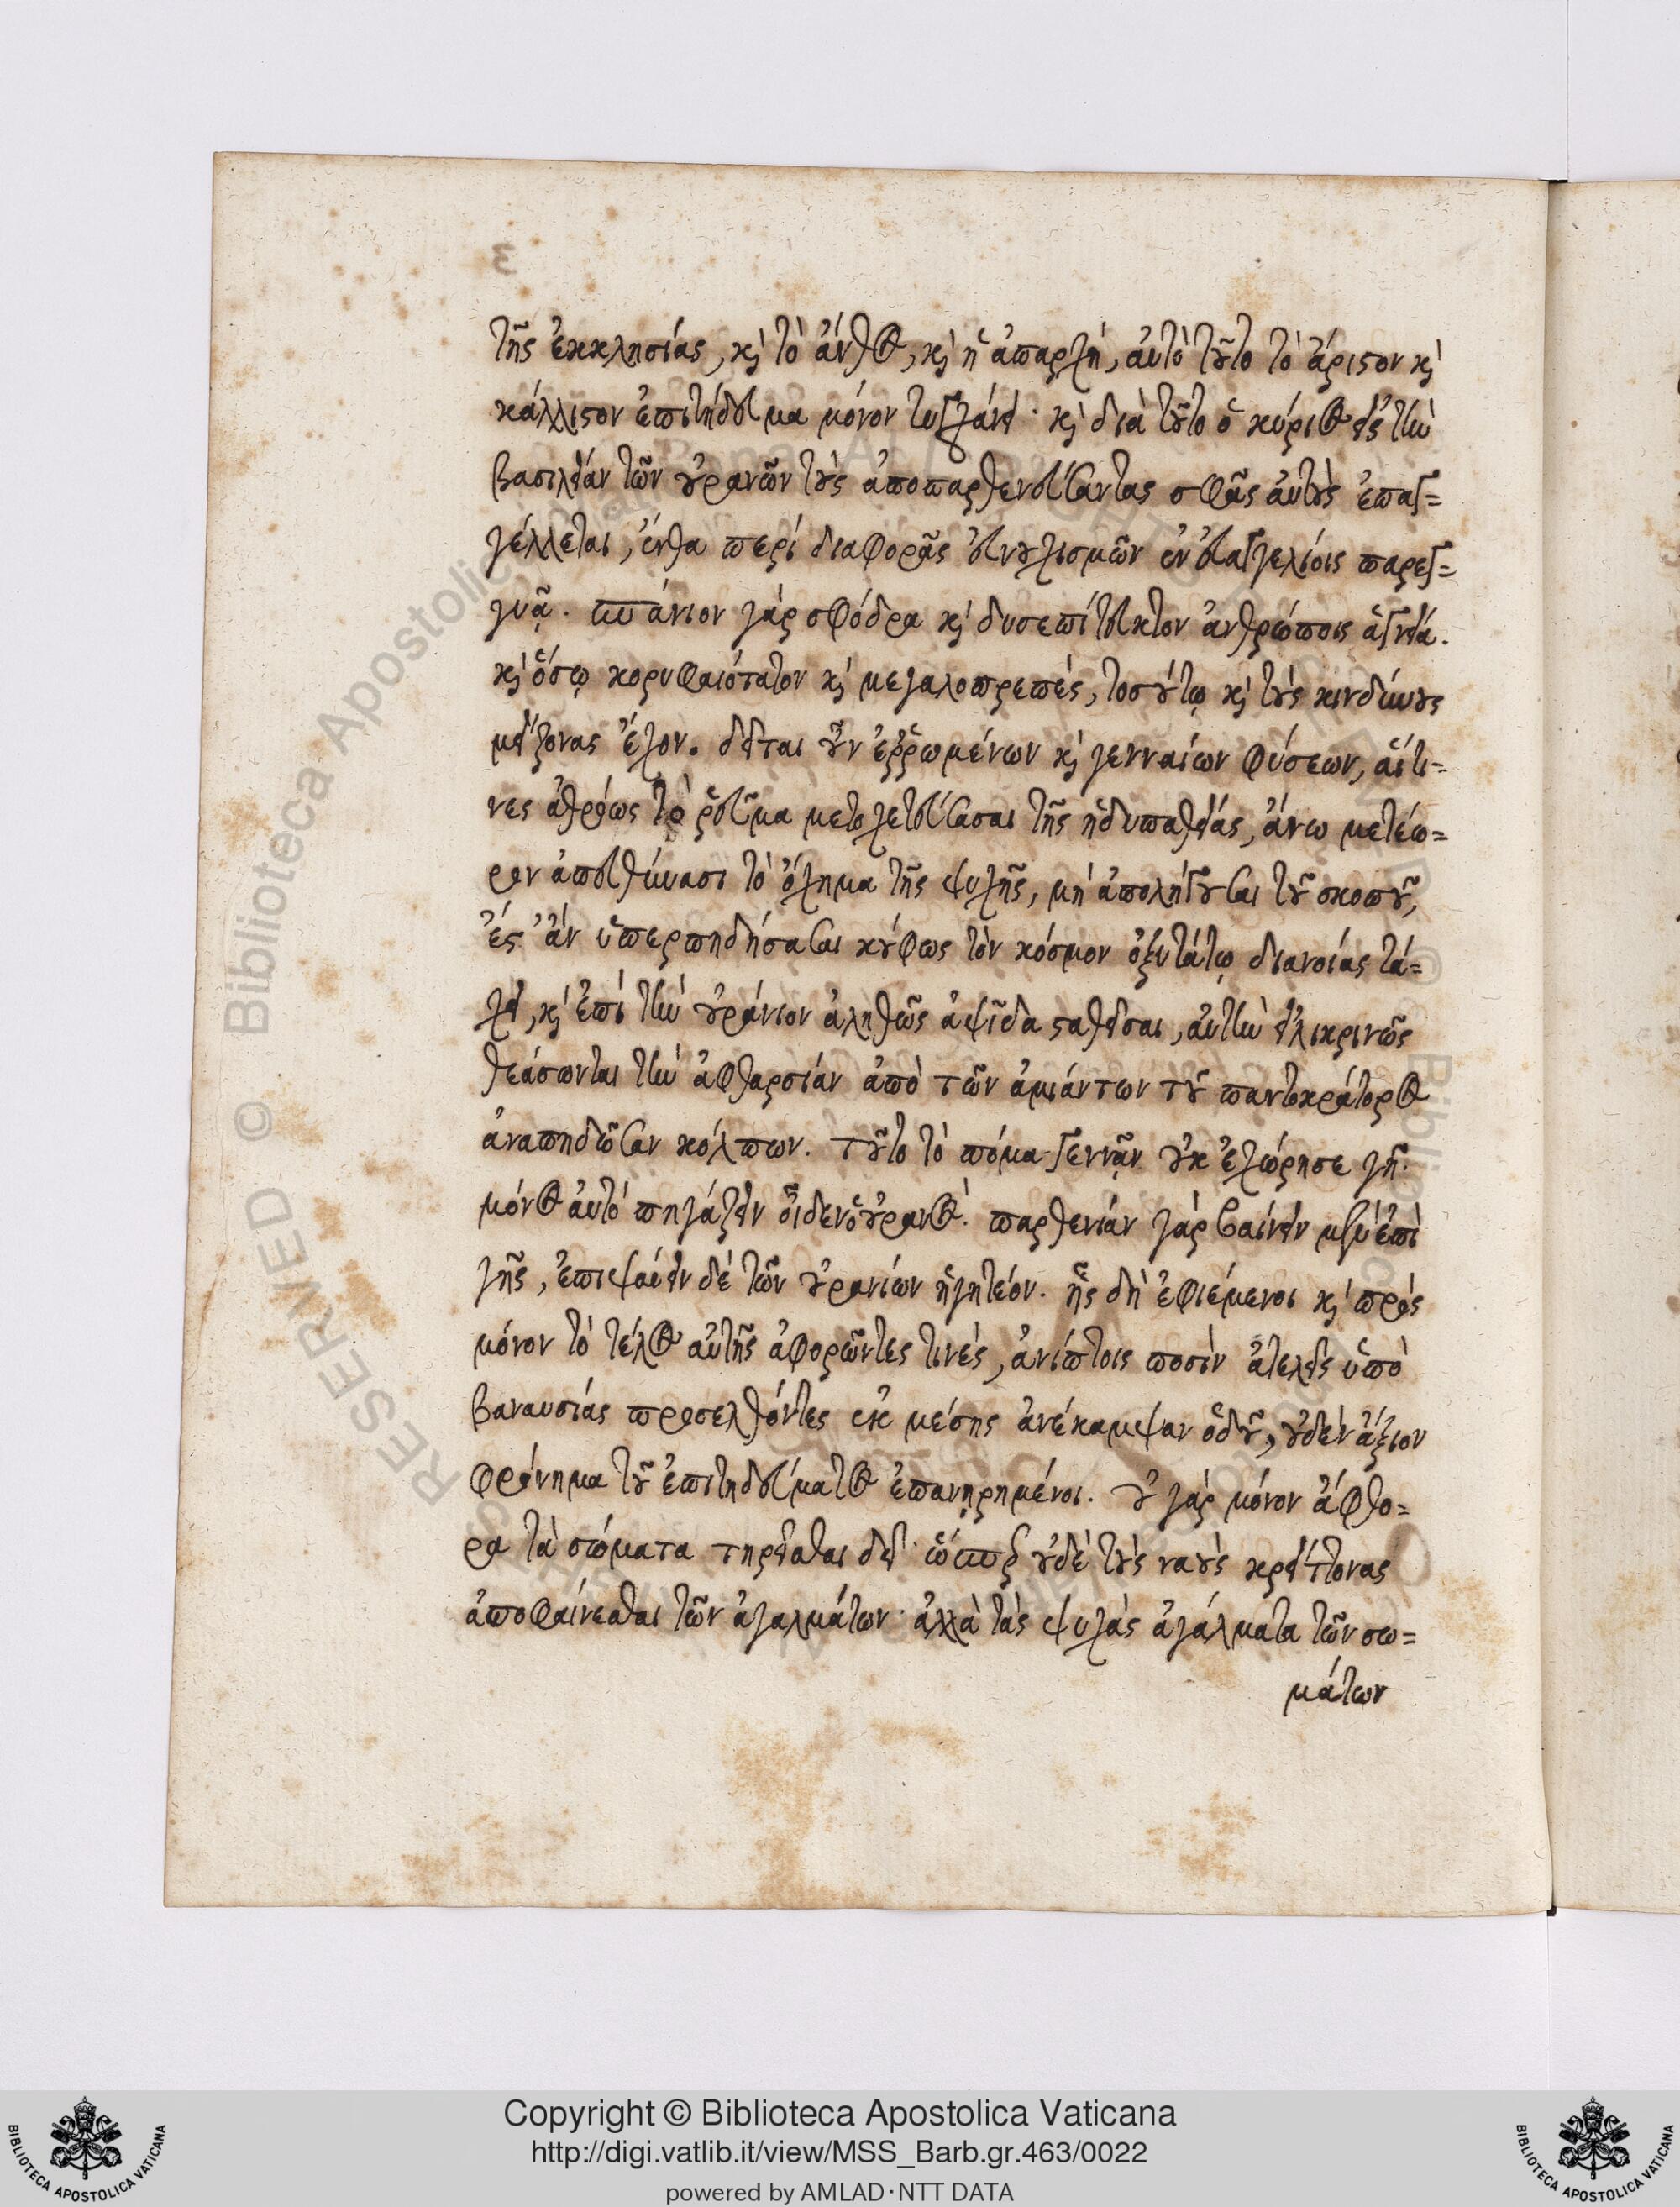 3
τῆς ἐκκλησίας, κὶ τὸ ἄνθος, κὶ ἡ ἀπαρχὴ, ἀυτὸ τοῦτο τὸ ἄριστον κὶ
κάλλιστον ἐπιτήδευμα μόνον τυγχάνει· κὶ διὰ τοῦτο ὁ κύριος εἰς τὴν
βασιλείαν τῶν οὐρανῶν τοὺς ἀποπαρθενεύσαντας σφᾶς ἀυτοὺς ἐπαγ=
γέλλεται, ἔνθα περὶ διαφορᾶς εὐνουχισμῶν ἐν εὐαγγελίοις παρεγ=
γυᾷ. σπάνιον γὰρ σφόδρα κὶ δυσεπίτευκτον ἀνθρώποις ἁγνεία.
κὶ ὅσῳ κορυφαιότατον κὶ μεγαλοπρεπὲς, τοσούτῳ κὶ τοὺς κινδύνους
μείζονας ἔχον. δεῖται οὖν ἐῤῥωμένων κὶ γενναίων φύσεων, αἵτι=
νες ἀθρόως τὸ ῥεῦμα μετοχετεύσασαι τῆς ἡδυπαθείας, ἄνω μετέω=
ρον ἀπευθύνασι τὸ ὄχημα τῆς ψυχῆς, μὴ ἀπολήγουσαι τοῦ σκοποῦ,
ἔς τ' ἂν ὑπερπηδήσασαι κούφως τὸν κόσμον ὀξυτάτῳ διανοίας τά=
χει, κὶ ἐπὶ τὴν οὐράνιον ἀληθῶς ἁψῖδα σταθεῖσαι, ἀυτὴν εἰλικρινῶς
θεάσωνται τὴν ἀφθαρσίαν ἀπὸ τῶν ἀμιάντων τοῦ παντοκράτορος
ἀναπηδῶσαν κόλπων. τοῦτο τὸ πόμα γεννᾷν οὐκ ἐχώρησε γῆ.
μόνος ἀυτὸ πηγάζειν οἶδεν ὁ οὐρανός. παρθενίαν γὰρ βαίνειν μὲν ἐπὶ
γῆς, ἐπιψαύειν δὲ τῶν οὐρανίων ἡγητέον. ἧς δὴ ἐφιέμενοι κὶ πρὸς
μόνον τὸ τέλος αὐτῆς ἀφορῶντες τινὲς, ἀνίπτοις ποσὶν ἀτελεῖς ὑπὸ
βαναυσίας προσελθόντες ἐκ μέσης ἀνέκαμψαν ὁδοῦ, οὐδὲν ἄξιον
φρόνημα τοῦ ἐπιτηδεύματος ἐπανῃρημένοι. οὐ γὰρ μόνον ἄφθο=
ρα τὰ σώματα τηρεῖσθαι δεῖ· ὥσπερ οὐδὲ τοὺς ναοὺς κρείττονας
ἀποφαίνεσθαι τῶν ἀγαλμάτων· ἀλλὰ τὰς ψυχὰς ἀγάλματα τῶν σω=
μάτων
RESERVED © Biblioteca Apostolica
Copyright © Biblioteca Apostolica Vaticana
http://digi.vatlib.it/view/MSS_Barb.gr.463/0022
powered by AMLAD·NTT DATA
BIBLIOTECA APOSTOLICA VATICANA
BIBLIOTECA APOSTOLICA VATICANA